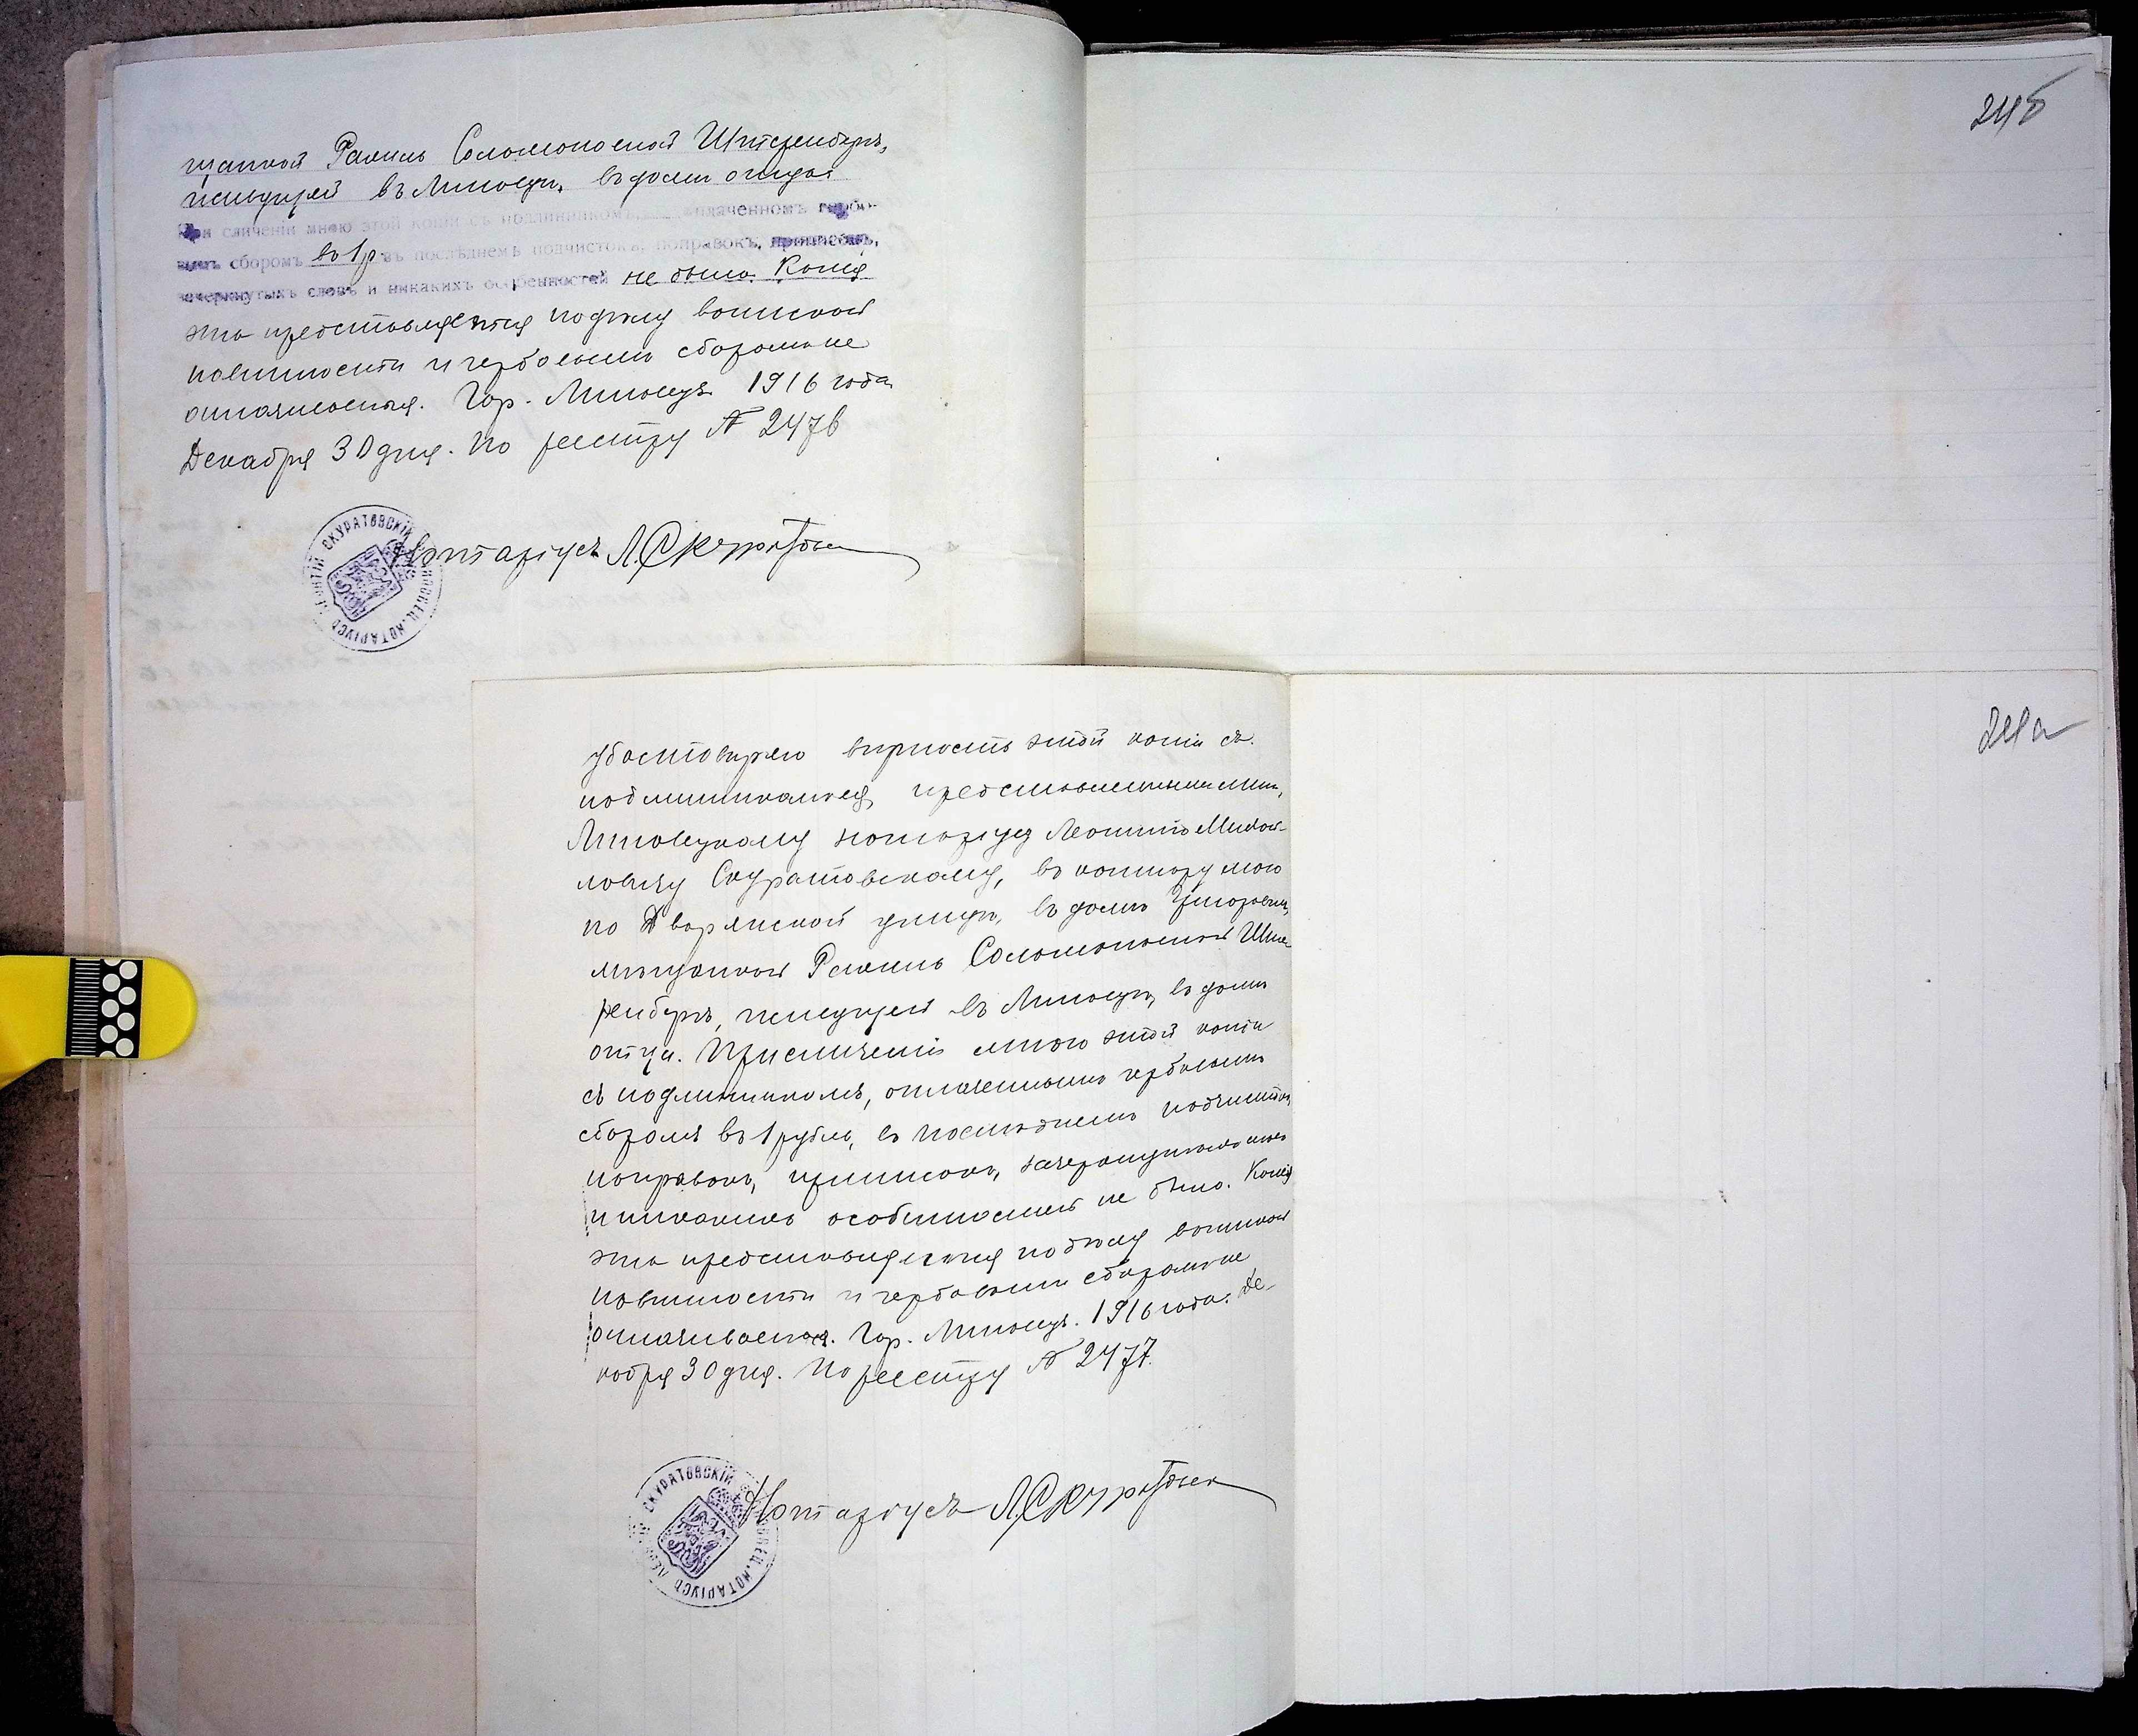 щанкой Рахиль Соломоновной Штеренбергъ,
живущей въ Липовцѣ, въ домѣ отца.
При сличеніи мною этой копіи съ подлинникомъ, оплаченномъ гербо-
вымъ сборомъ въ 1 р. въ послѣднемъ подчистокъ, поправокъ, приписокъ,
зачеркнутыхъ словъ и никакихъ особенностей не было. Копія
эта представляется по дѣлу воинской
повинности и гербовымъ сборомъ не
оплачивается. Гор. Липовецъ 1916 года
Декабря 30 дня. По реестру № 2476
Нотаріусъ Л. Скуратовскій
СКУРАТОВСКІЙ ЛИПОВЕЦ. НОТАРІУСЪ ЛЕОНТІЙ
24б
24а
Удостовѣряю вѣрность этой копіи съ
подлинникомъ, представленнымъ мнѣ,
Липовецкому нотаріусу Леонтію Михай-
ловичу Скуратовскому, въ контору мою
по Дворянской улицѣ, въ домѣ
мѣщанкой Рахиль СоломоновнойШте-
ренбергъ, живущей въ Липовцѣ, въ домѣ
отца. При сличеніи мною этой копіи
съ подлинникомъ, оплаченнымъ гербовымъ
сборомъ въ 1 рубль, въ послѣднемъ подчистокъ,
поправокъ, приписокъ, зачеркнутыхъ словъ
и никакихъ особенностей не было. Копія
эта представляется по дѣлу воинской
повинности и гербовымъ сборомъ не
оплачивается. Гор. Липовецъ. 1916 года. Де-
кабря 30 дня. По реестру № 2477.
Нотаріусъ Л. Скуратовскій
СКУРАТОВСКІЙ ЛИПОВЕЦ. НОТАРІУСЪ ЛЕОНТІЙ